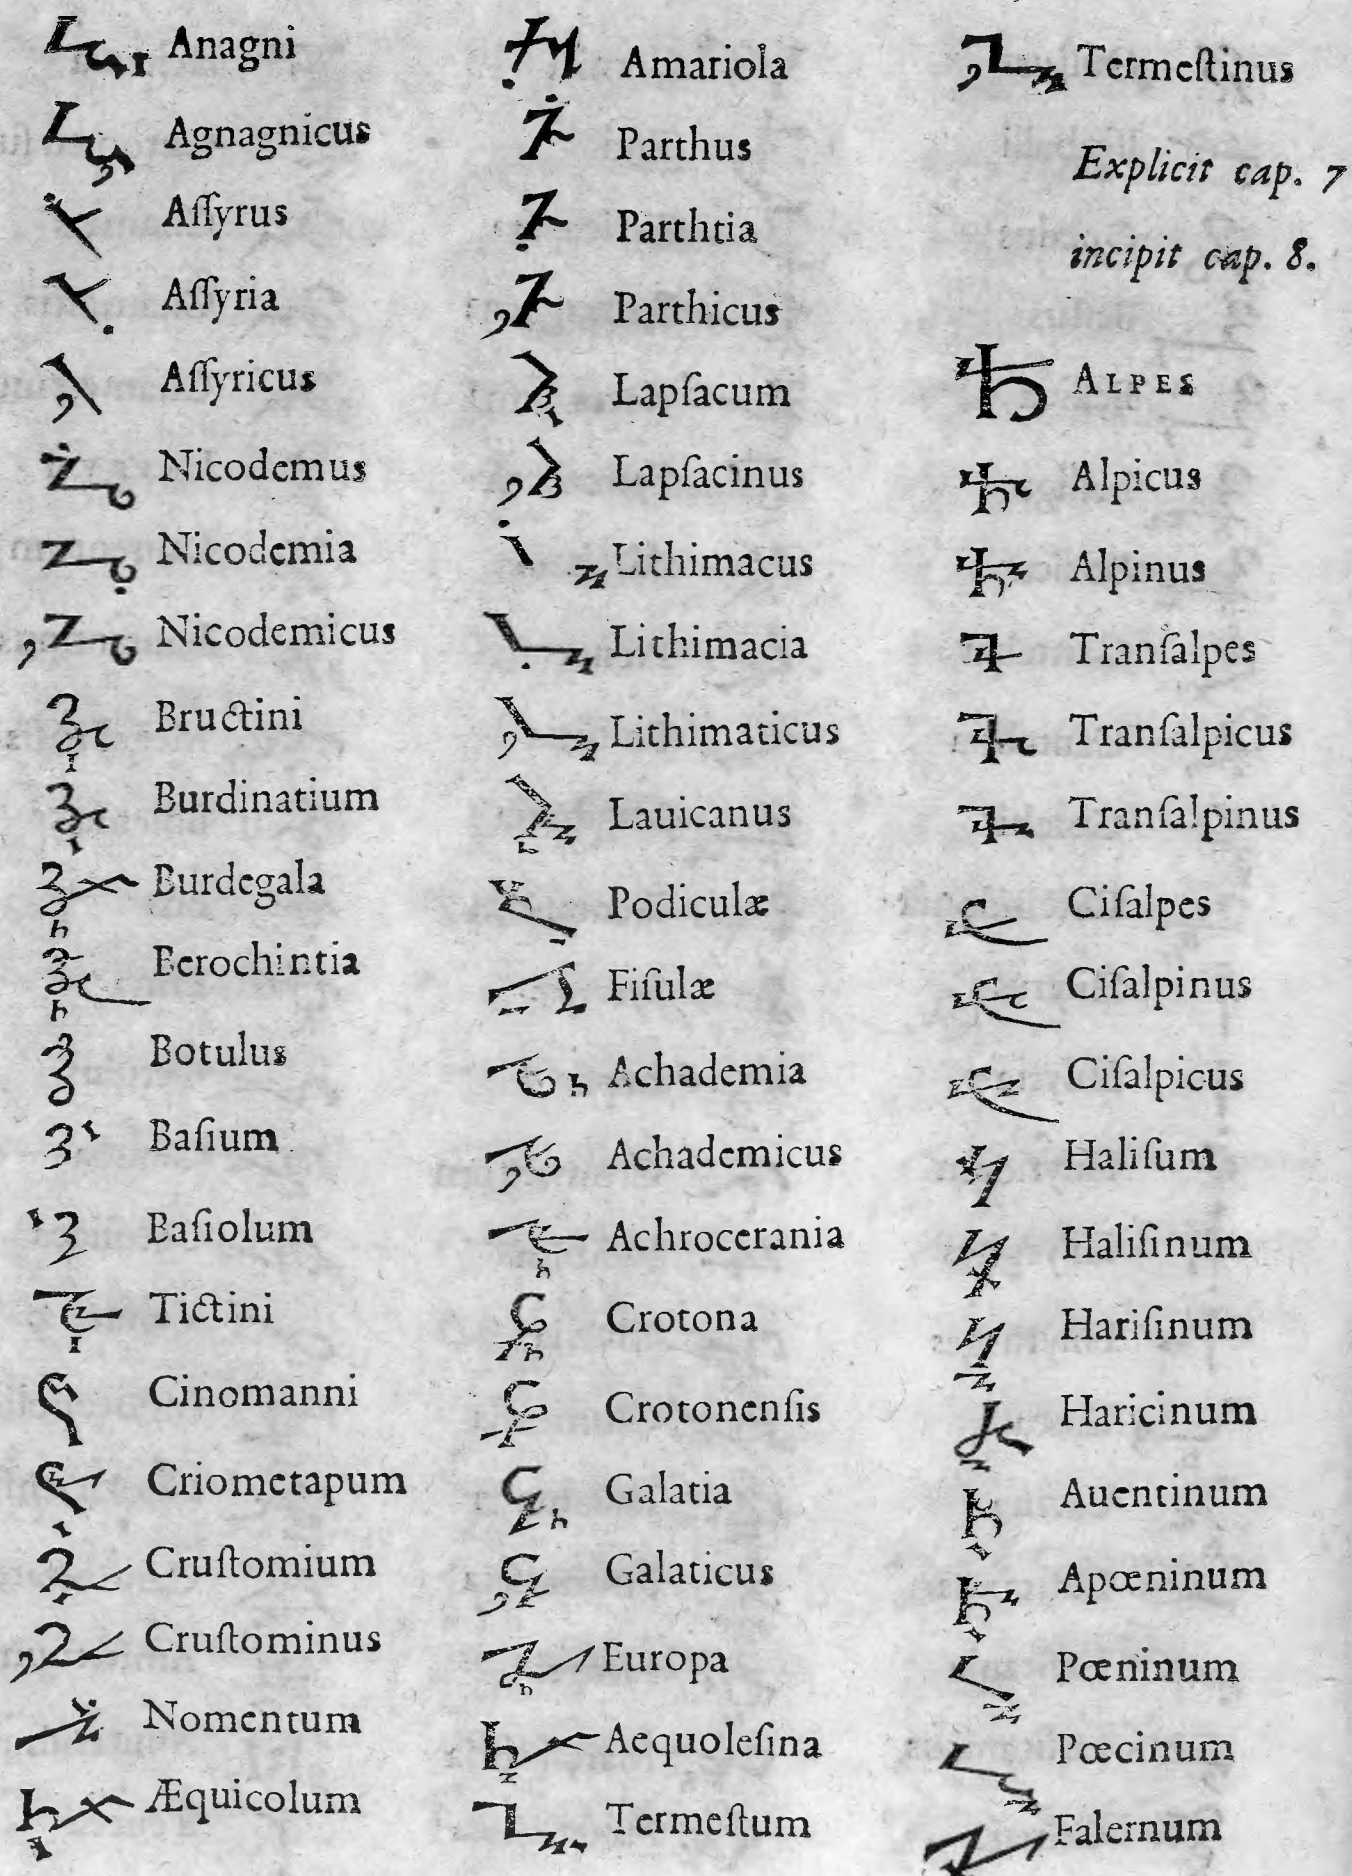 Anagni
Agnagnicus
Aſſyrus
Aſſyria
Aſſyricus
Nicodemus
Nicodemia
Nicodemicus
Bructini
Burdinatium
Burdegala
Berochintia
Botulus
Baſium
Baſiolum
Tictini
Cinomanni
Criometapum
Cruſtomium
Cruſtominus
Nomentum
Æquicolum
Amariola
Parthus
Parthtia
Parthicus
Lapſacum
Lapſacinus
Lithimacus
Lithimacia
Lithimaticus
Lauicanus
Podiculæ
Fiſulæ
Achademia
Achademicus
Achrocerania
Crotona
Crotonenſis
Galatia
Galaticus
Europa
Aequoleſina
Termeſtum
Termeſtinus
Explicit cap. 7
incipit cap. 8.
ALPES
Alpicus
Alpinus
Tranſalpes
Tranſalpicus
Tranſalpinus
Ciſalpes
Ciſalpinus
Ciſalpicus
Haliſum
Haliſinum
Hariſinum
Haricinum
Auentinum
Apœninum
Pœninum
Pœcinum
Falernum